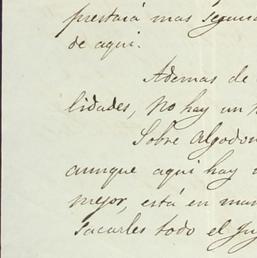 prestará mas segura
de aqui.
Ademas de
lidades, no hay un
Sobre Algodon
aunque aqui hay
mejor, está en man
Sacarles todo el Jug